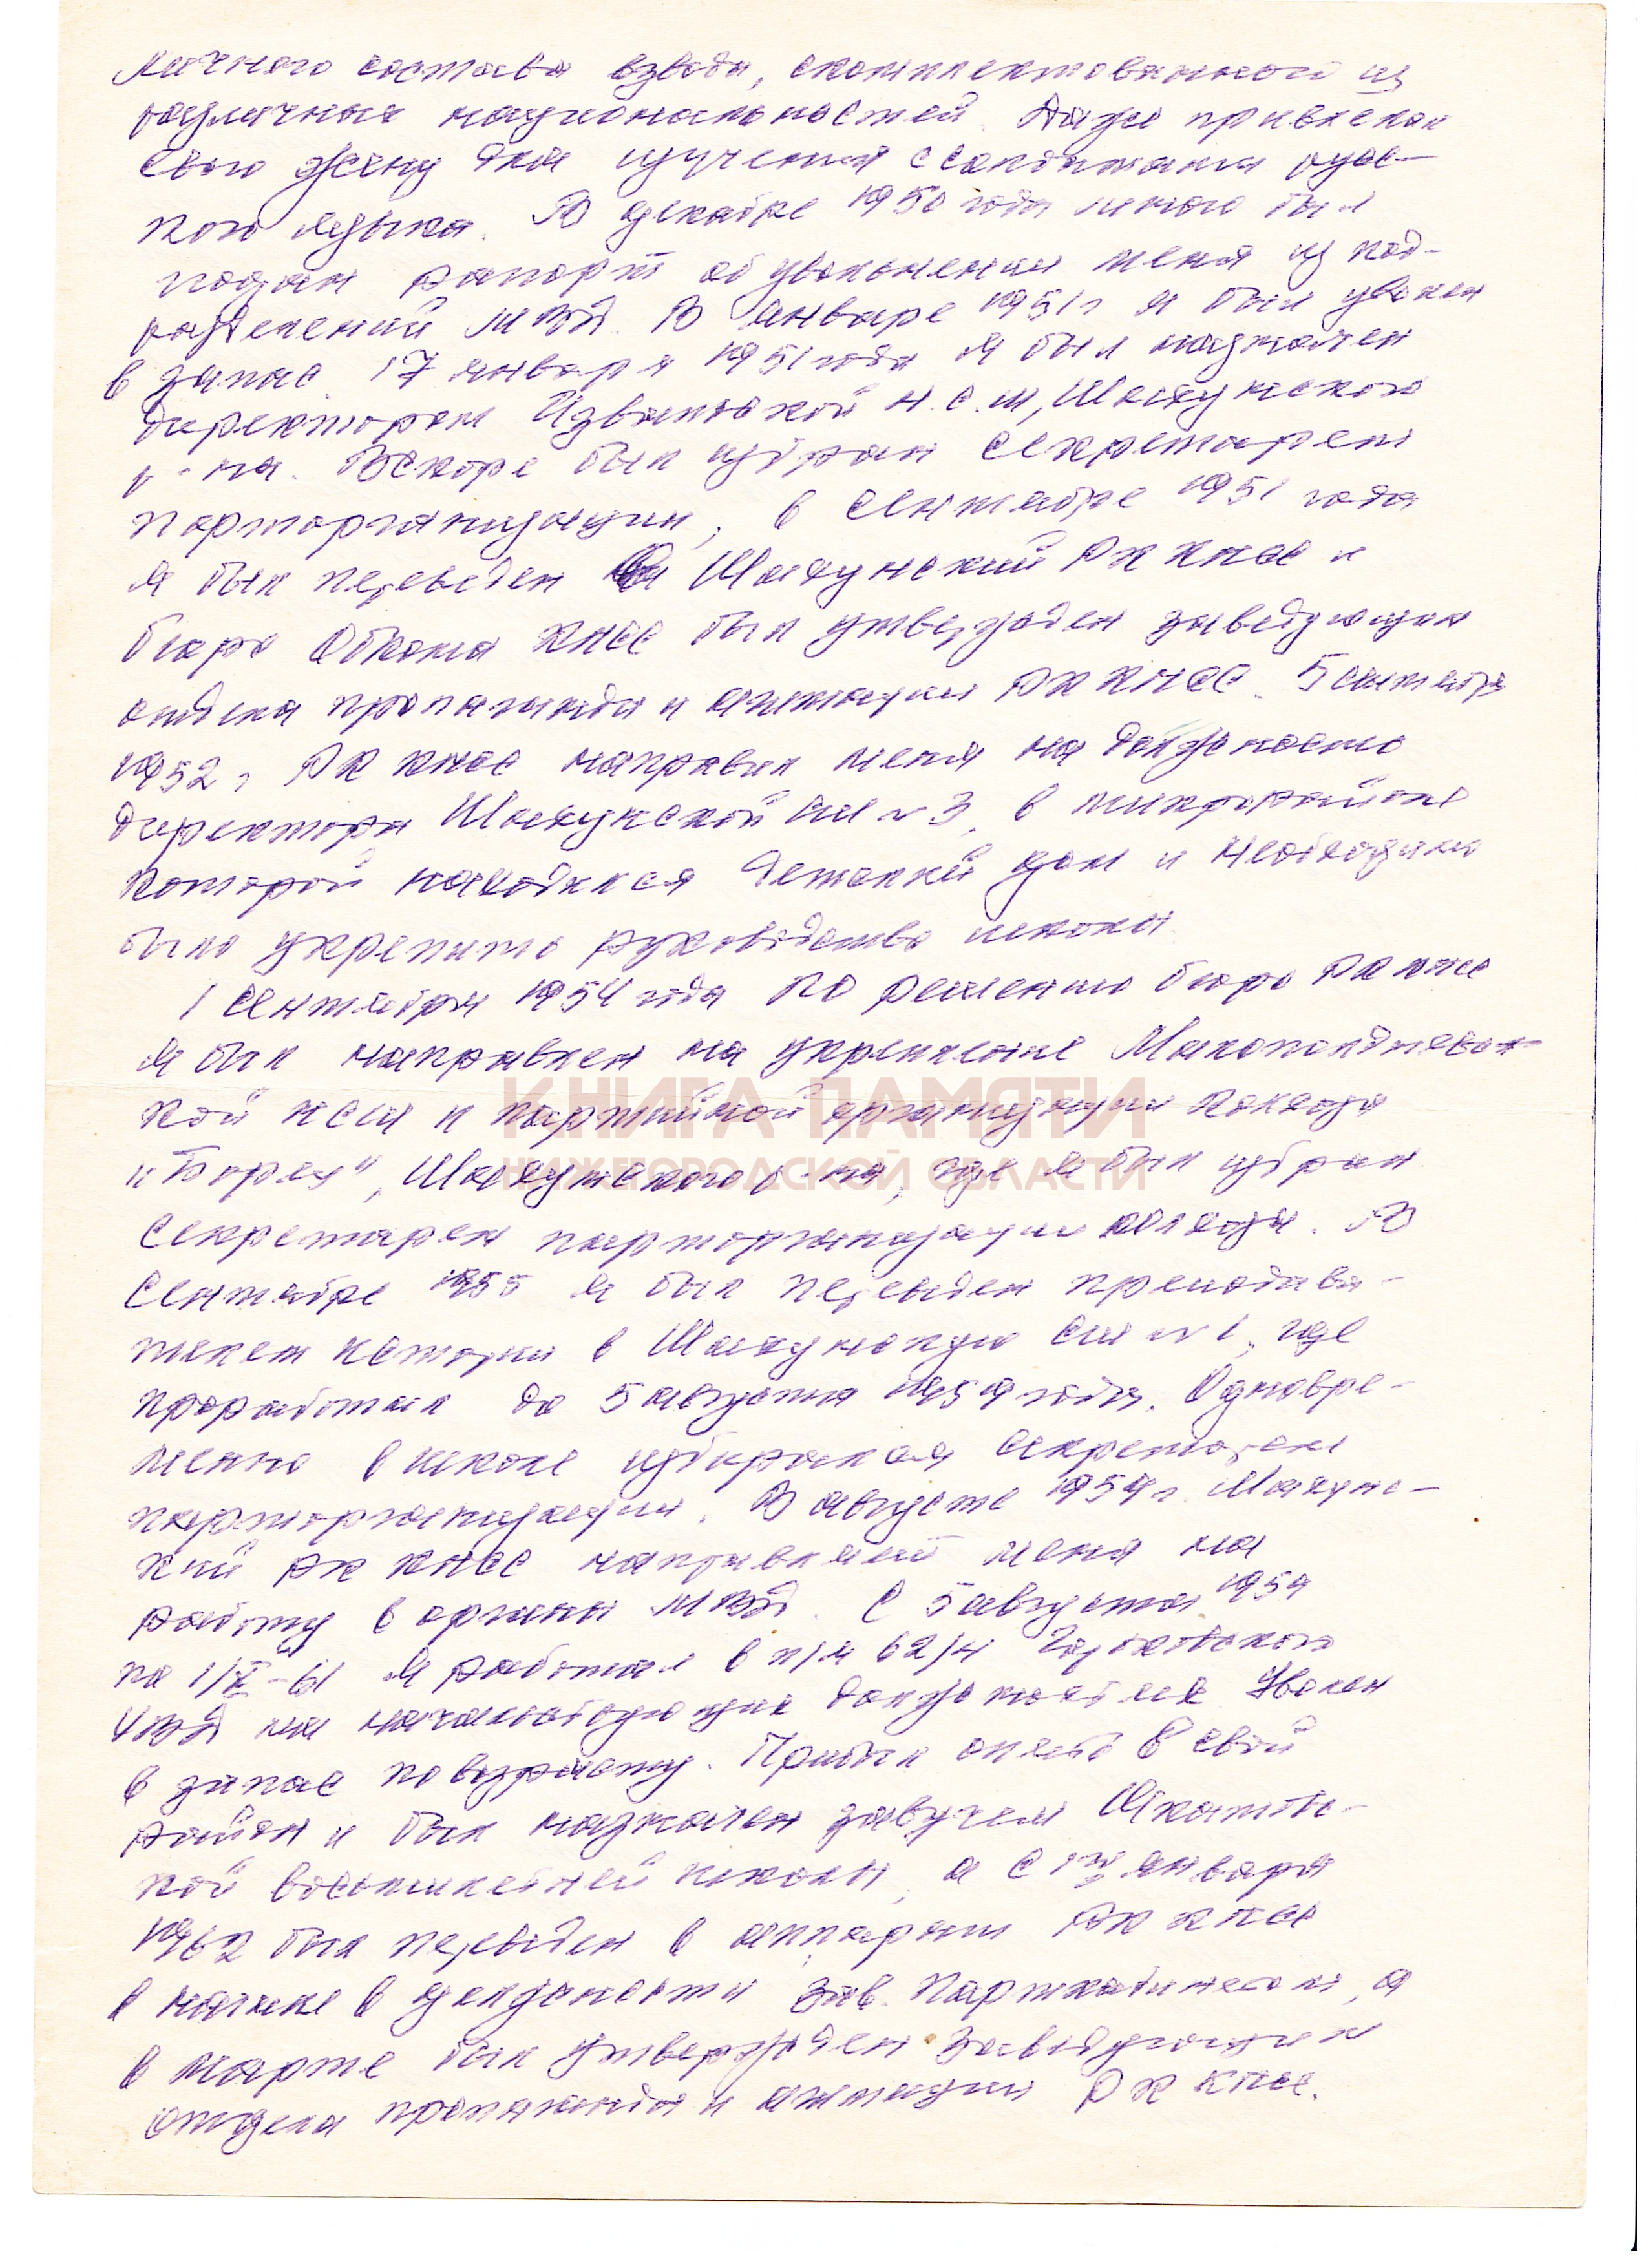 личного состава взвода, скомплектованного из
различных национальностей. Даже привлекал
свою жену для изучения с солдатами рус-
кого языка. В декабре 1950 года мною был
подан рапорт об увольнении меня из под-
разделений МВД. В январе 1951 г я был уволен
в запас. 17 января 1951 года я был назначен
директором Извальской Н.С.Ш, Шахунского
р-на. Вскоре был избран секретарем
парторганизации, в сентябре 1951 года
я был переведен в Шахунский РК КПСС и
бюро Обкома КПСС был утвержден заведующим
отдела пропаганды и агитации РК КПСС. 5 сентября
1952 г РК КПСС направил меня на должность
директора Шахунской СШ № 3, в микрорайоне
которой находился Детский дом и необходимо
было укрепить руководство школы.
1 сентября 1954 года по решению бюро РК КПСС
я был направлен на укрепление
кой НСШ и партийной организации колхоза
"Борец", Шахунского р-на, где я был избран
секретарем парторганизации колхоза. В
сентябре 1955 я был переведен преподава-
телем истории в Шахунскую СШ № 1, где
проработал до 5 августа 1959 года. Одновре-
менно в школе избирался секретарем
парторганизации. В августе 1959 г. Шахунс-
кий РК КПСС направляет меня на
работу в органы МВД. С 5 августа 1959
по 1/X-61 я работал в п/я 62/4 Горьковского
УВД на начальствующих должностях. Уволен
в запас по возрасту. Прибыл опять в свой
район и был назначен завучем
кой восьмилетней школы, а с января
1962 был переведен в аппарат РК КПСС
в начале в должности зав. Парткабинетом, а
в марте был утвержден заведующим
отдела пропаганды и агитации РК КПСС.
КНИГА ПАМЯТИ
НИЖЕГОРОДСКОЙ ОБЛАСТИ